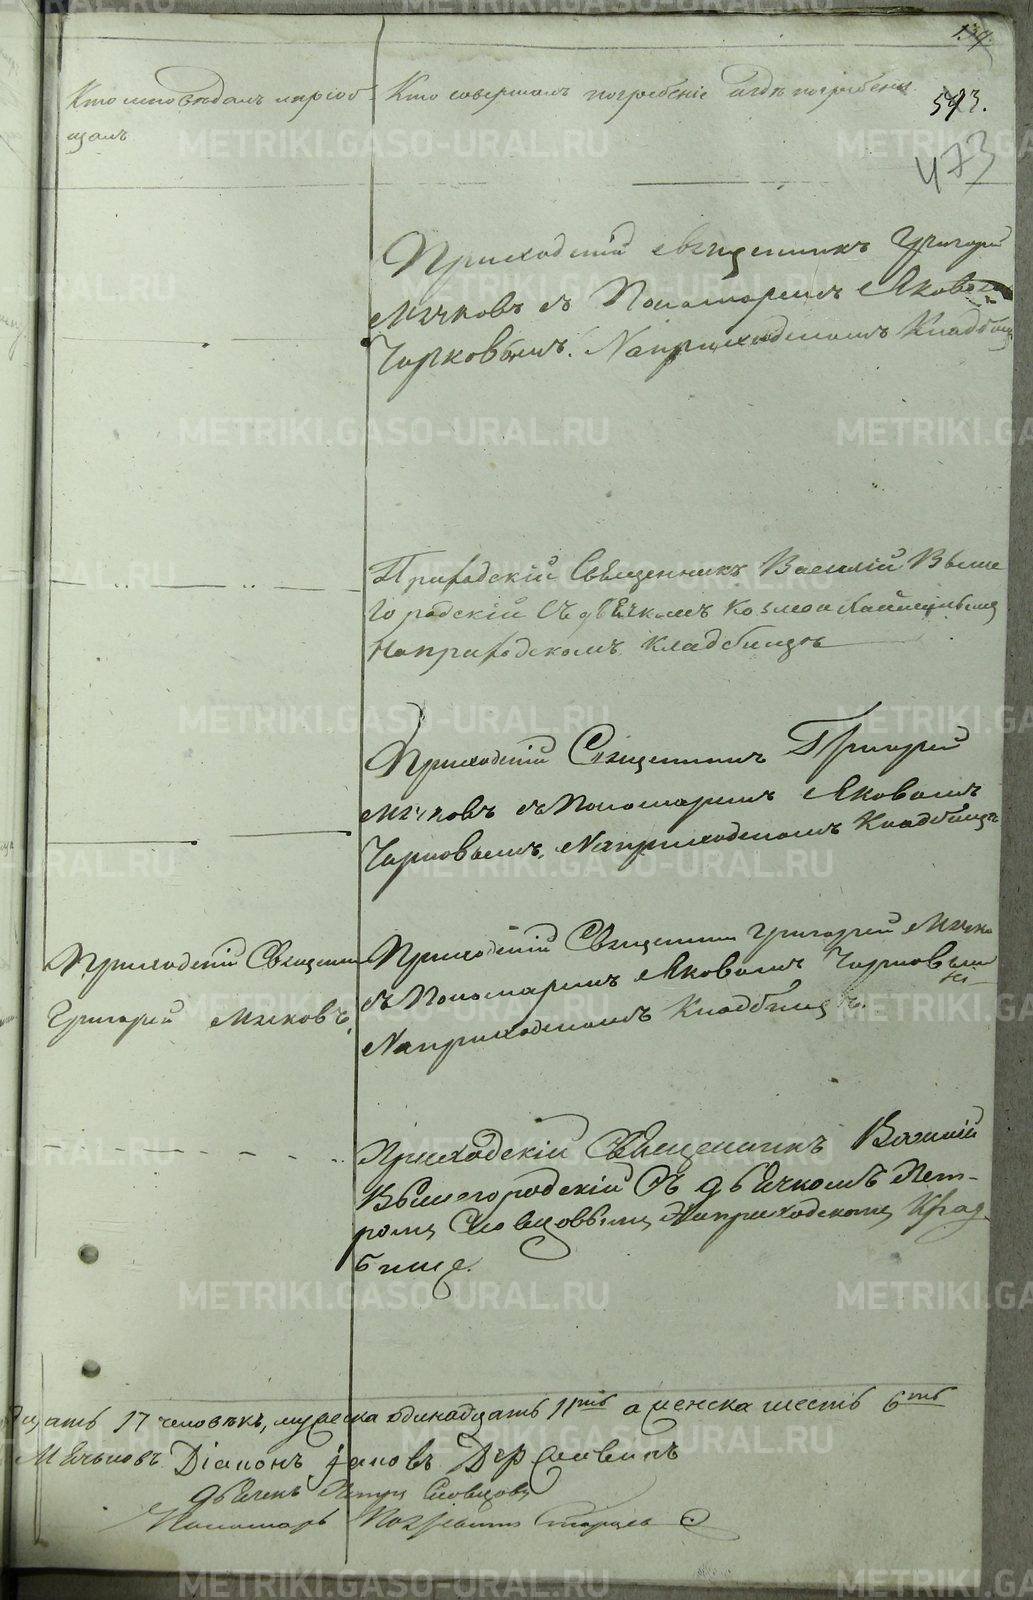 593.
473
Кто исповѣдалъ и приоб
щалъ
Кто совершалъ погребеніе и гдѣ погребены
Приходскій священникъ Григорій
Мячковъ съ Пономаремъ Яковомъ
Чирковымъ. На приходскомъ Кладбищѣ
Приходскій Священникъ Василій Выше
городскій Съ дьячкомъ Козмою
На приходскомъ кладбищѣ
Приходскій Священникъ Григорій
Мячковъ съ Пономаремъ Яковомъ
Чирковымъ. На приходскомъ Кладбищѣ
Приходскій Священник
Григорій Мячковъ
Приходскій Священник Григорій Мячков
съ Пономаремъ Яковомъ Чирковым
На приходскомъ Кладбищѣ.
Приходскій Священникъ Василій
Вышегородскій Съ дьячкомъ Пет-
ромъ Словцовымъ На приходскомъ Клад
бище.
цать 17 человѣкъ, мужеска одинадцать 11ть а женска шесть 6ть
Мячьковъ Діаконъ Державинъ
дьячекъ Петръ Словцовъ
Пономарь
METRIKI.GASO-URAL.RU